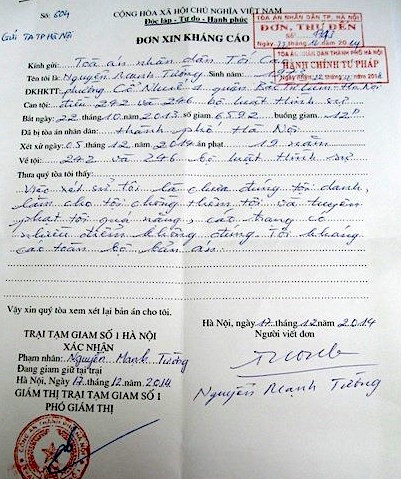 Số: 604 CỘNG HÒA XÃ HỘI CHỦ NGHĨA VIỆT NAM
Độc lập - Tự do - Hạnh phúc
Gửi TATP Hà Nội
TÒA ÁN NHÂN DÂN TP. HÀ NỘI
ĐƠN, THƯ ĐẾN
Số
Ngày
TÒA ÁN NHÂN DÂN THÀNH PHỐ HÀ NỘI
HÀNH CHÍNH TƯ PHÁP
ĐƠN XIN KHÁNG CÁO
Kính gửi: Toà án nhân dân Tối Cao
Tên tôi là: Nguyễn Mạnh Tường Sinh năm
ĐKHKTT: phường Cổ Nhuế 1 quận Bắc Từ Liêm Hà Nội
Can tội: điều 242 và 246 bộ luật hình sự
Bắt ngày 22 tháng 10 năm 2013 số giam 6592 buồng giam 12
Đã bị tòa án nhân dân: thành phố Hà Nội
Xét xử ngày 05 tháng 12 năm 2014 án phạt 19 năm
Về tội: 242 và 246 bộ luật hình sự
Thưa quý tòa tôi thấy:
Việc xét xử tôi là chưa đúng tội danh,
làm cho tôi chồng thêm tội và tuyên
phạt tôi quá nặng, cáo trạng có
nhiều điểm không đúng. Tôi kháng
cáo toàn bộ bản án.
Vậy xin quý tòa xem xét lại bản án cho tôi.
Hà Nội, ngày 17 tháng 12 năm 2014
Người viết đơn
Nguyễn Mạnh Tường
TRẠI TẠM GIAM SỐ 1 HÀ NỘI
XÁC NHẬN
Phạm nhân: Nguyễn Mạnh Tường
Đang giam giữ tại trại
Hà Nội, Ngày 17 tháng 12 năm 2014
GIÁM THỊ TRẠI TẠM GIAM SỐ 1
PHÓ GIÁM THỊ